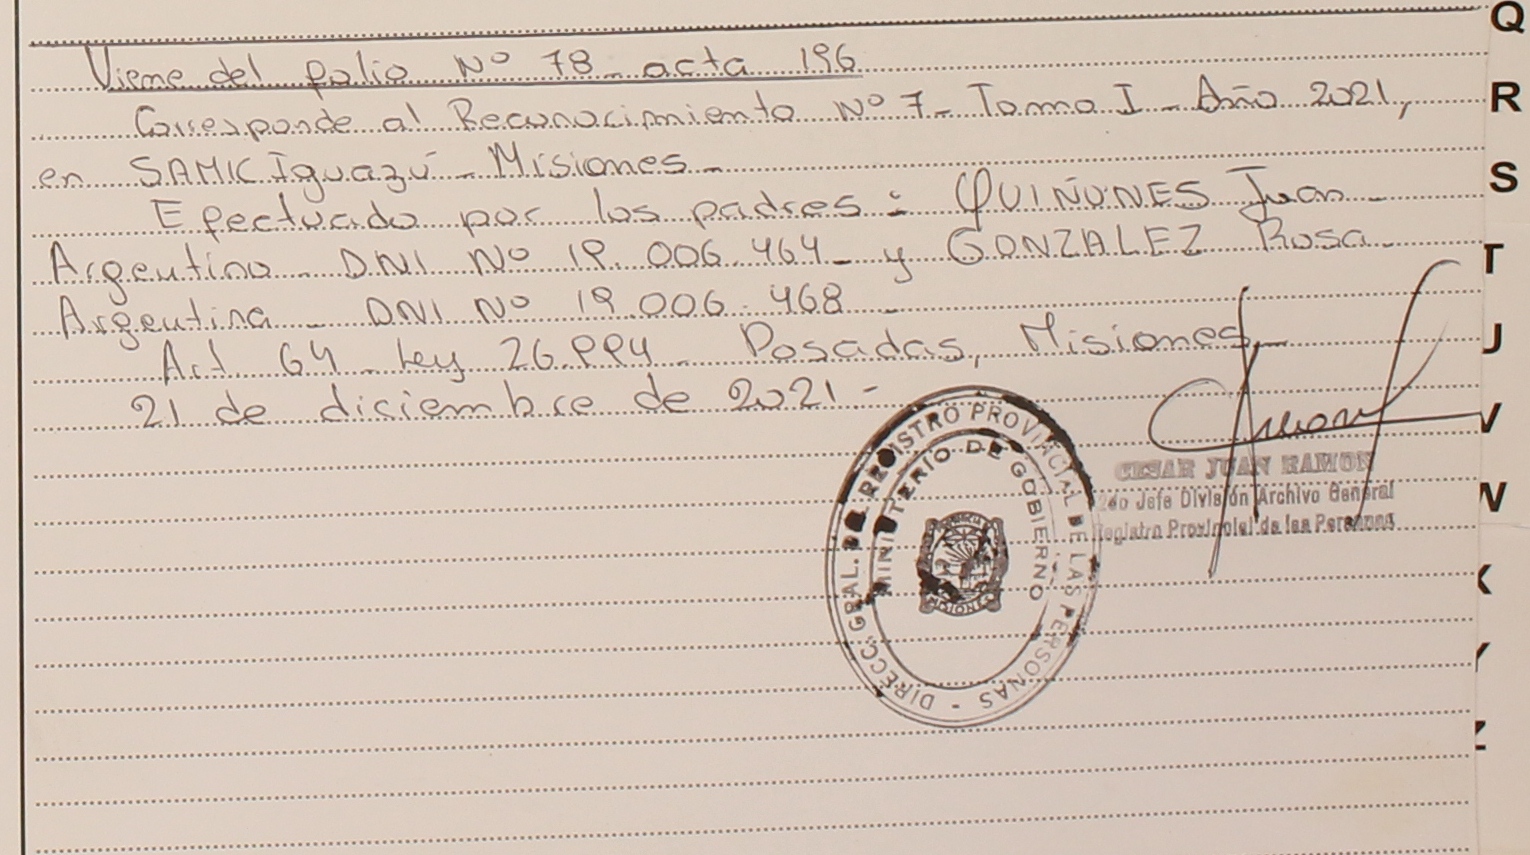 Viene del folio Nº 78 - acta 196
Corresponde al Reconocimiento Nº 7 - Tomo I - Año 2021,
en SAMIC Iguazú - Misiones -
Efectuado por los padres : QUIÑONES Juan -
Argentino - DNI Nº 19.006.464 - y GONZALEZ Rosa -
Argentina - DNI Nº 19.006.468 -
Art 64 Ley 26.994 - Posadas, Misiones,
21 de diciembre de 2021 -
DIRECC. GRAL. DEL REGISTRO PROVINCIAL DE LAS PERSONAS -
MINISTERIO DE GOBIERNO
CESAR JUAN RAMON
2do Jefe División Archivo General
Registro Provincial de las Personas
Q
R
S
T
U
V
W
X
Y
Z